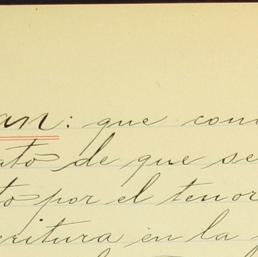 an: que con
ato de que se
to por el tenor
critura en la